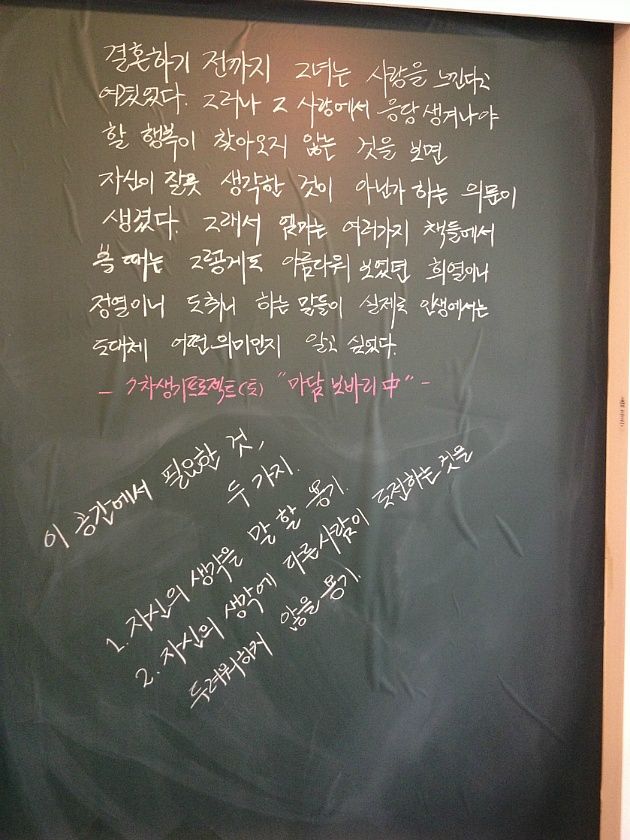 결혼하기 전까지 그녀는 사랑을 느낀다고
여겼었다. 그러나 그 사랑에서 응당 생겨나야
할 행복이 찾아오지 않는 것을 보면
자신이 잘못 생각한 것이 아닌가 하는 의문이
생겼다. 그래서 엠마는 여러가지 책들에서
볼 때는 그렇게도 아름다워 보였던 희열이니
정열이니 도취니 하는 말들이 실제로 인생에서는
도대체 어떤 의미인지 알고 싶었다.
- 7차생기프로젝트(토) "마담 보바리 中" -
이 공간에서 필요한 것,
두 가지.
1. 자신의 생각을 말 할 용기
2. 자신의 생각에 다른사람이 도전하는 것을
두려워하지 않을 용기